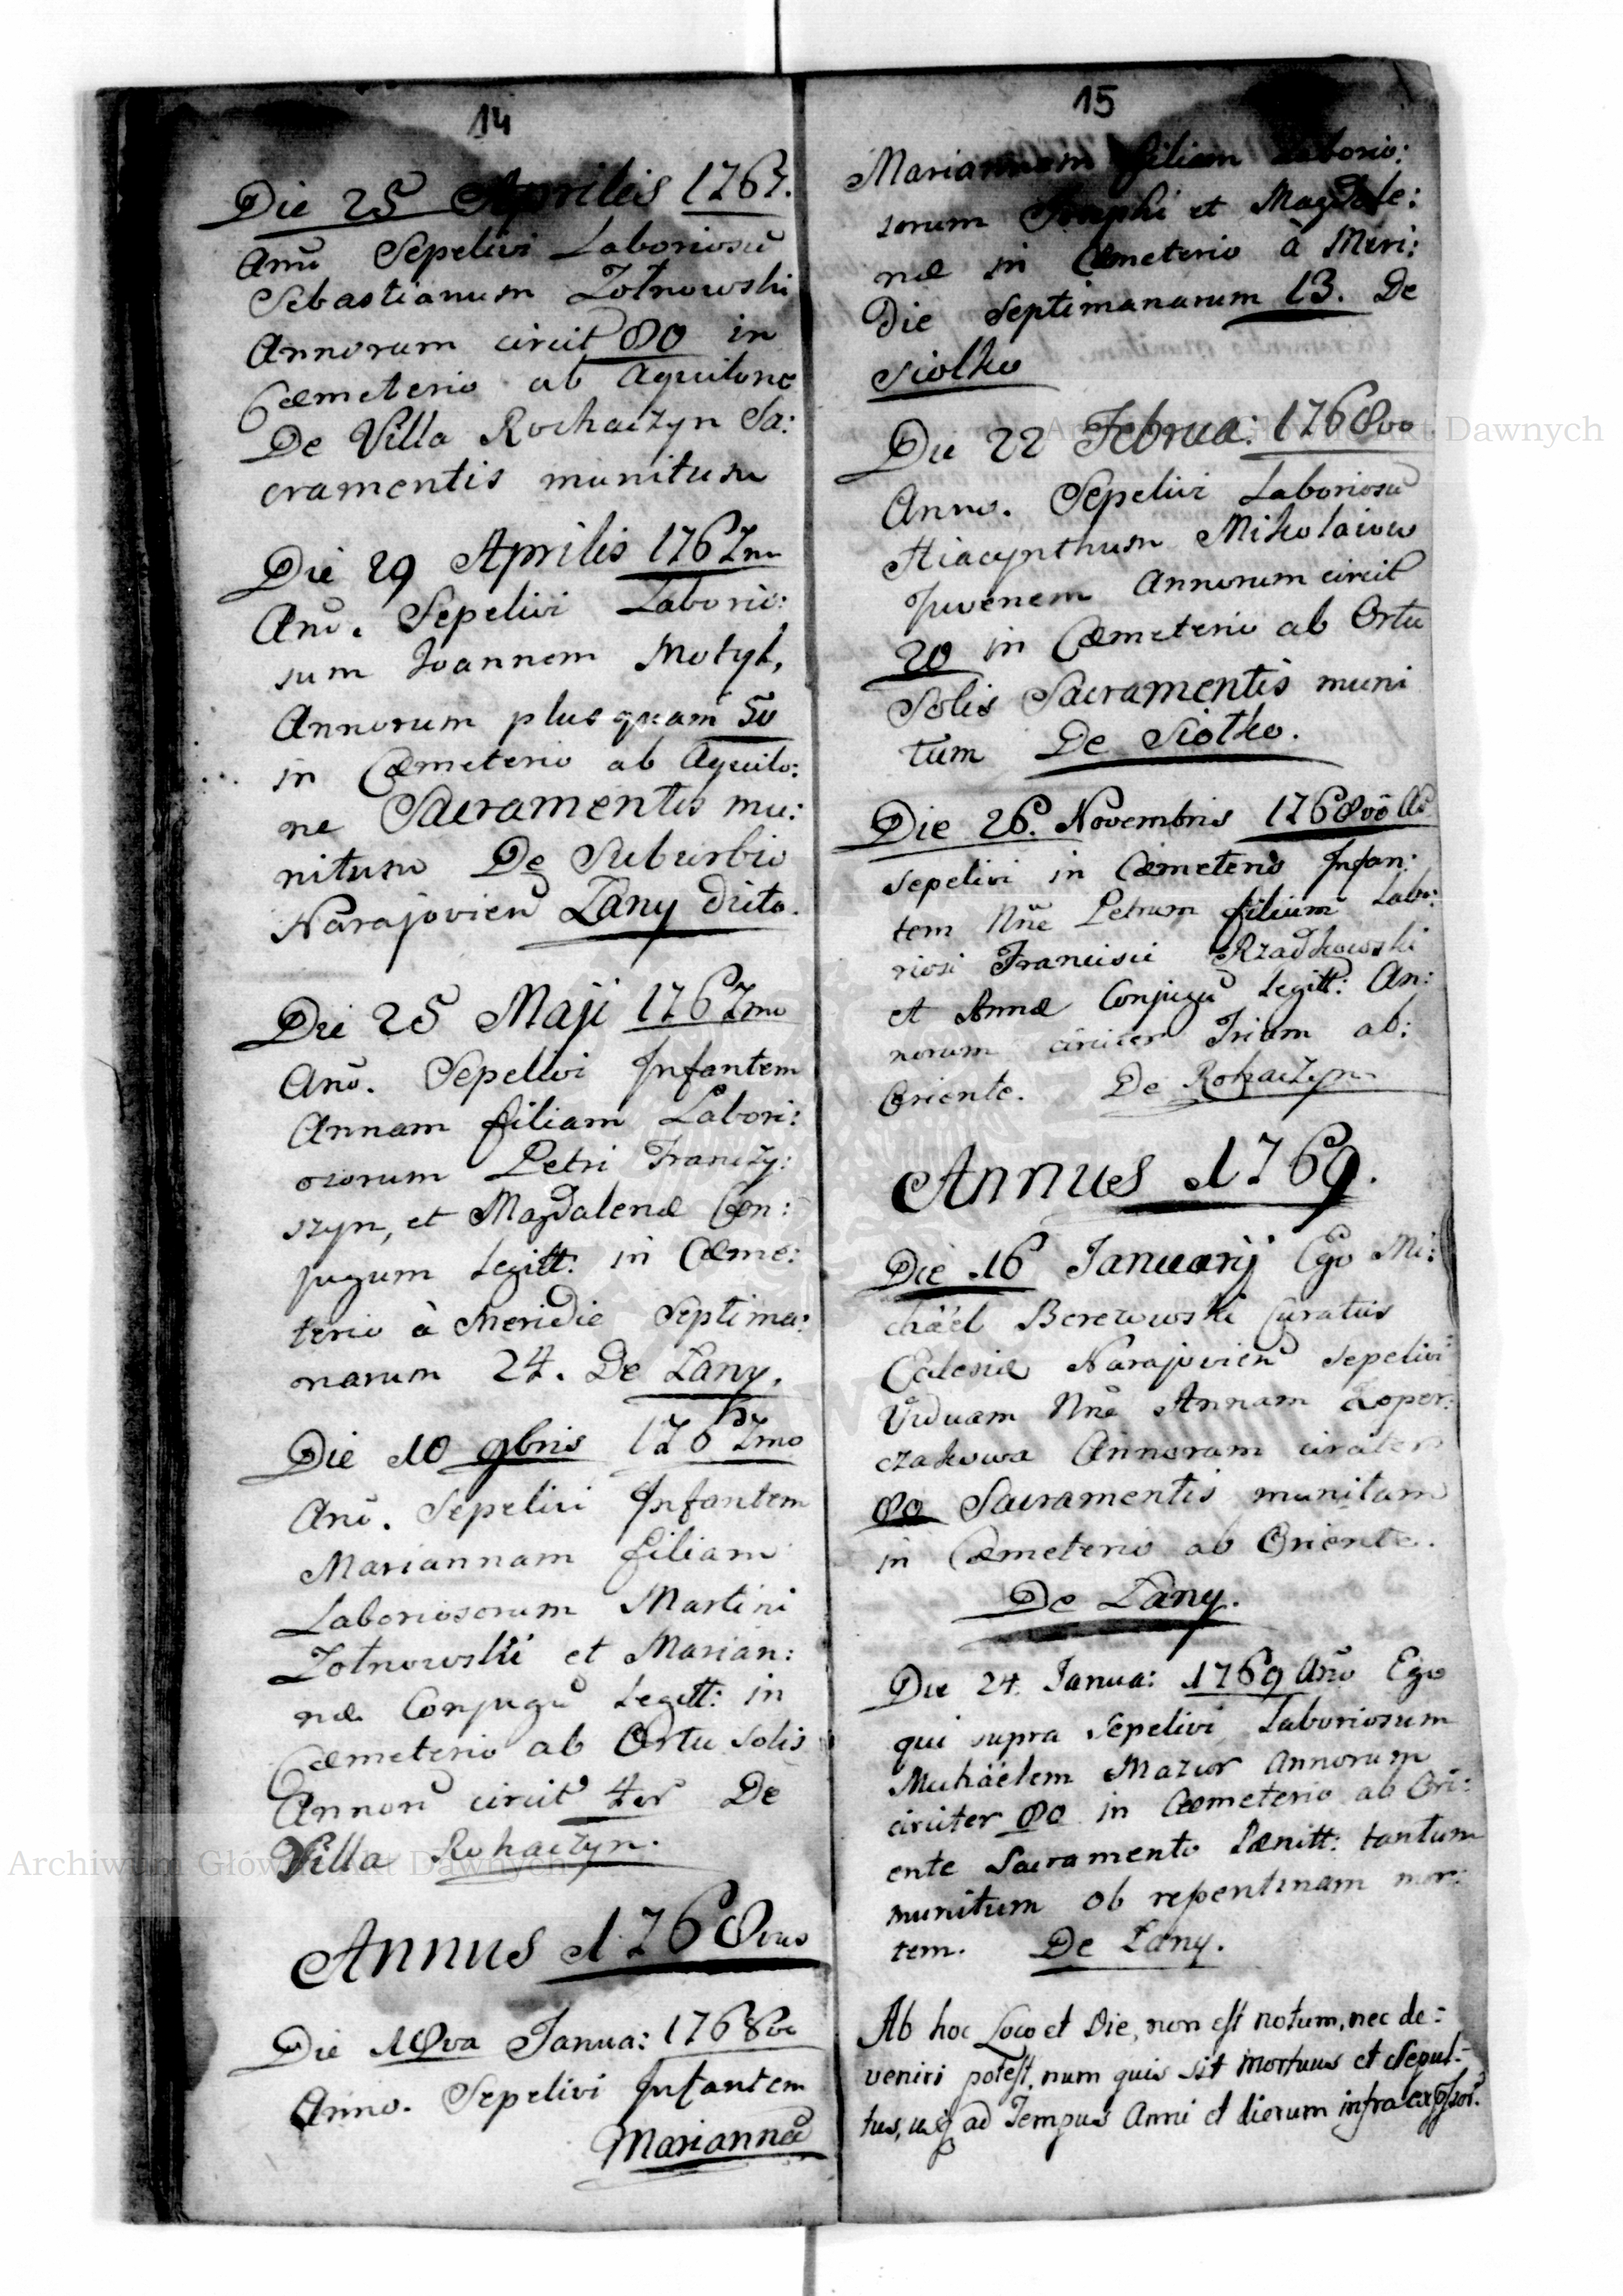 14
Die 25 Aprilis 1767.
Anō Sepelivi Laboriosū
Sebastianum Zołnowski
Annorum circit 80 in
Cæmeterio ab Aquilone
De Villa Rochaczyn Sa:
cramentis munitum
Die 29 Aprilis 1767mo
Anō. Sepelivi Laborio:
sum Joannem Motyl,
Annorum plusquam 50
in Cæmeterio ab Aquilo:
ne Sacramentis mu:
nitum De Suburbio
Narajovien Łany dicto.
Die 25 Maji 1767mo
Anō. Sepelivi Infantem
Annam filiam Labori:
osorum Petri Franczy:
szyn, et Magdalenæ Con:
jugum Legitt: in Cæme:
terio à Meridie Septima:
narum 24. De Łany.
Die 10 9bris 1767mo
Anō. Sepelivi Infantem
Mariannam filiam
Laboriosorum Martini
Zołnowski et Marian:
næ Conjugū Legitt: in
Cæmeterio ab Ortu Solis
Annorū circit 4or De
Villa Rohaczyn.
Annus 1768vus
Die 18va Janua: 1768vo
Anno. Sepelivi Infantem
Mariannā
15
Mariannam filiam Laborio:
sorum Josephi et Magdale:
næ in Cæmeterio à Meri:
Die Septimanarum 13. De
Siolko
Die 22 Februa: 1768vo
Anno. Sepelivi Laboriosū
Hiacynthum Mikolaiow
Juvenem Annorum circit
20 in Cæmeterio ab Ortu
Solis Sacramentis muni
tum De Siołko.
Die 26. Novembris 1768vo Aō
sepelivi in Cæmeterio Infan:
tem Nñe Petrum filium Labo:
riosi Francisci Rzadkowski
et Annæ Conjugū Legitt: An:
norum circiter Trium ab:
Oriente. De Rohaczyn
Annus 1769.
Die 16 Januarij Ego Mi:
chäel Berezowski Curatus
Eclesiæ Narajovien sepelivi
Viduam Nñe Annam Łoper:
czakowa Annorum circiter
80 Sacramentis munitam
in Cæmeterio ab Oriente.
De Łany.
Die 24. Janua: 1769 Añō Ego
qui supra sepelivi Laboriosum
Michäelem Mazur Annorum
circiter 80 in Cæmeterio ab Ori:
ente Sacramento Pænitt: tantum
munitum ob repentinam mor:
tem. De Łany.
Ab hoc Loco et Die, non est notum, nec de:
veniri potest, num quis sit mortuus et Sepul:
tus, usq ad Tempus Anni et dierum infra
Archiwum Główne Akt Dawnych
Archiwum Główne Akt Dawnych